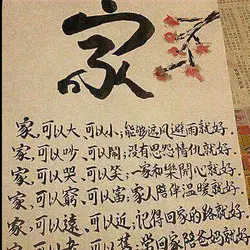 家
家,可以大,可以小;能够遮风避雨就好.
家,可以吵,可以闹;没有怨怨情仇就好.
家,可以哭,可以笑;一家和樂開心就好.
家,可以窮,可以富;家人陪伴温暖就好.
家,可以遠,可以近;記得回家的路就好.
家,可以 可以舊;常回家陪爸妈就好